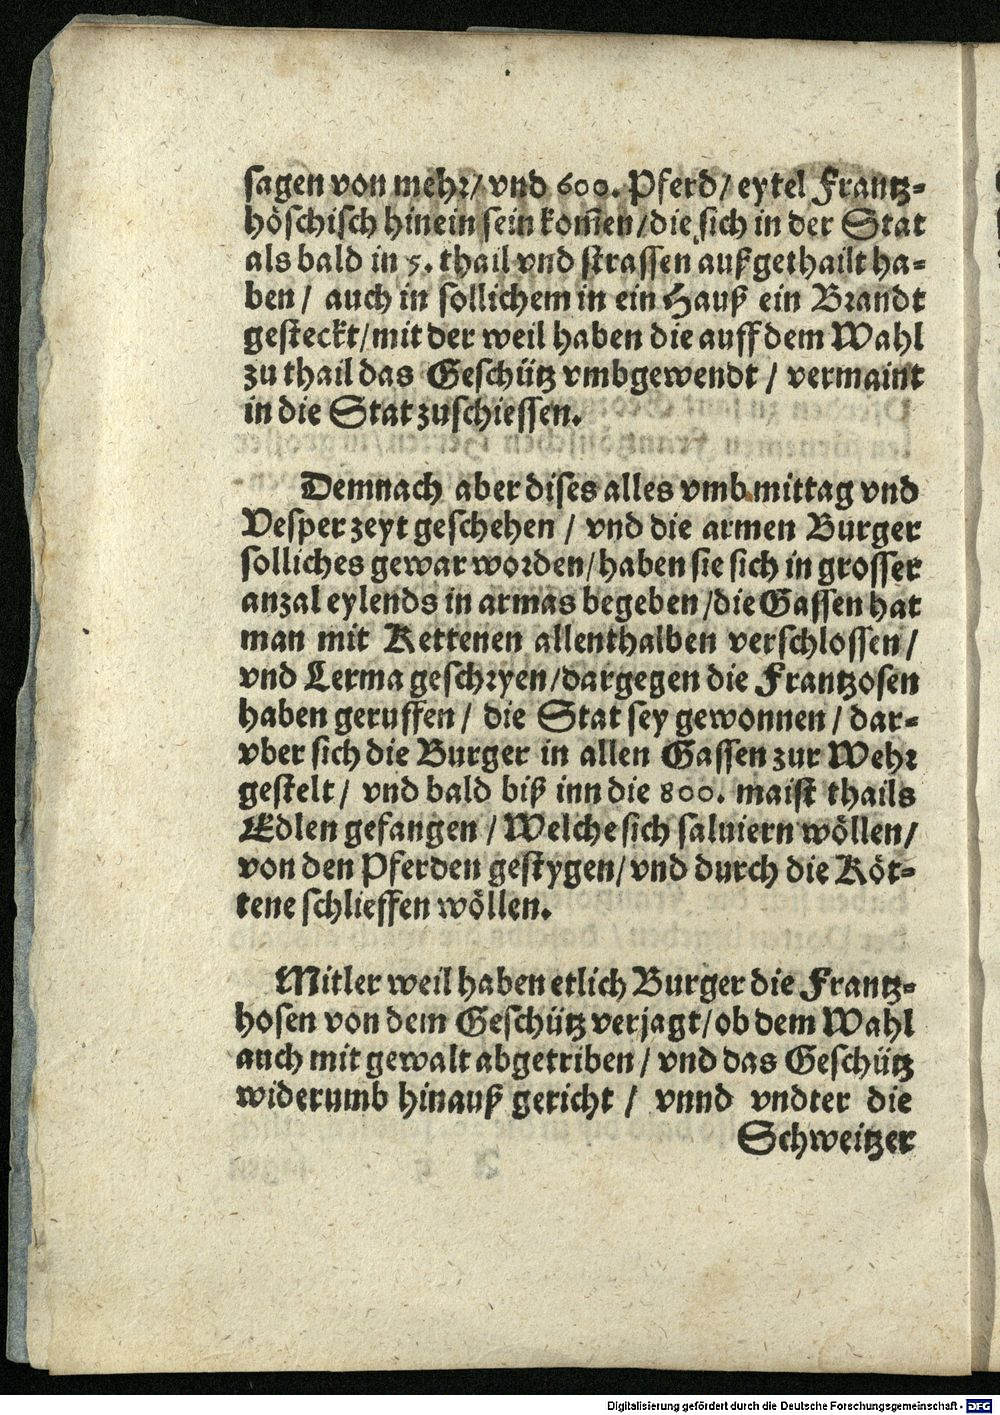 sagen von mehr/ vnd 600. Pferd/ eytel Frantz-
höschisch hinein sein kom̃en/ die sich in der Stat
als bald in 5. thail vnd strassen außgethailt ha-
ben/ auch in sollichem in ein Hauß ein Brandt
gesteckt/ mit der weil haben die auff dem Wahl
zu thail das Geschütz vmbgewendt/ vermaint
in die Stat zuschiessen.
Demnach aber dises alles vmb mittag vnd
Vesper zeyt geschehen/ vnd die armen Burger
solliches gewar worden/ haben sie sich in grosser
anzal eylends in armas begeben/ die Gassen hat
man mit Kettenen allenthalben verschlossen/
vnd Lerma geschryen/ dargegen die Frantzosen
haben geruffen/ die Stat sey gewonnen/ dar-
vber sich die Burger in allen Gassen zur Wehr
gestelt/ vnd bald biß inn die 800. maist thails
Edlen gefangen/ Welche sich saluiern wöllen/
von den Pferden gestygen/ vnd durch die Köt-
tene schlieffen wöllen.
Mitler weil haben etlich Burger die Frantz-
hosen von dem Geschütz verjagt/ ob dem Wahl
auch mit gewalt abgetriben/ vnd das Geschütz
widerumb hinauß gericht/ vnnd vndter die
Schweitzer
Digitalisierung gefördert durch die Deutsche Forschungsgemeinschaft - DFG